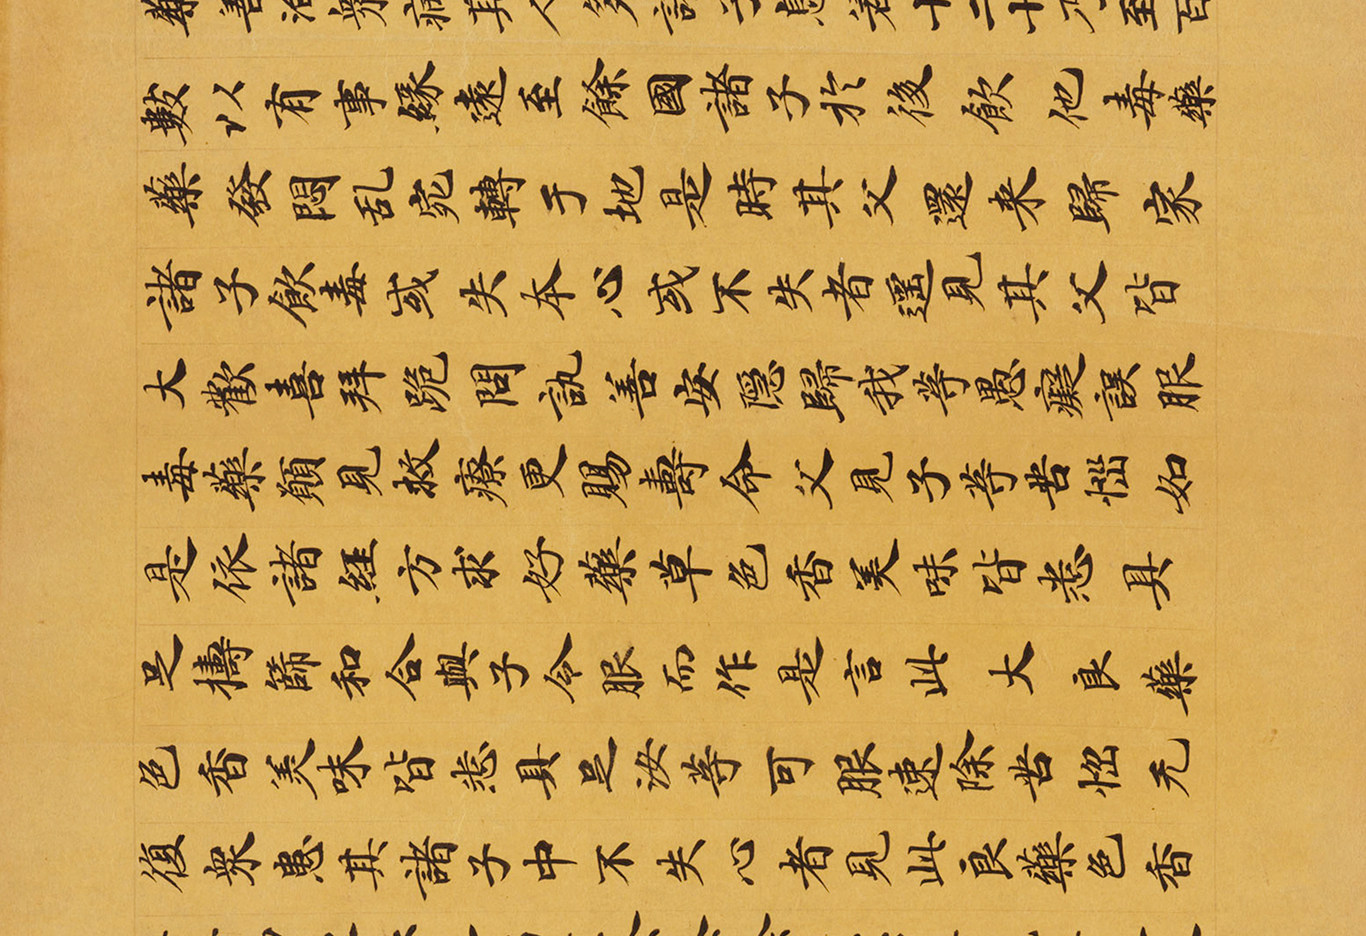 藥善治衆病其人多諸子息若十二十乃至百
數以有事緣遠至餘國諸子於後飲他毒藥
藥發悶乱宛轉于地是時其父還来歸家
諸子飲毒或失本心或不失者遥見其父皆
大歡喜拜跪問訊善安隱歸我等愚癡誤服
毒藥願見救療更賜壽命父見子等苦惱如
是依諸經方求好藥草色香美味皆悉具
足擣篩和合與子令服而作是言此大良藥
色香美味皆悉具足汝等可服速除苦惱无
復衆患其諸子中不失心者見此良藥色香